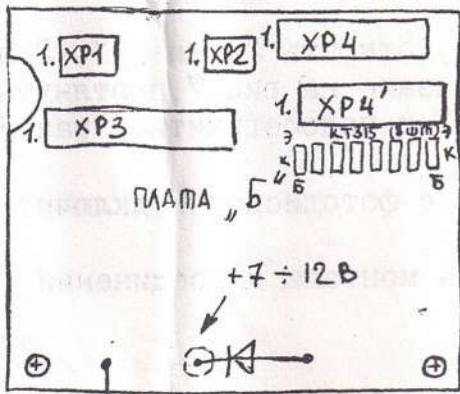 1. XP1
1. XP2
1. XP4
1. XP3
1. XP4'
Э КТ315 (8 шт) Э
К К
Б Б
ПЛАТА „Б"
+7 ÷ 12 В